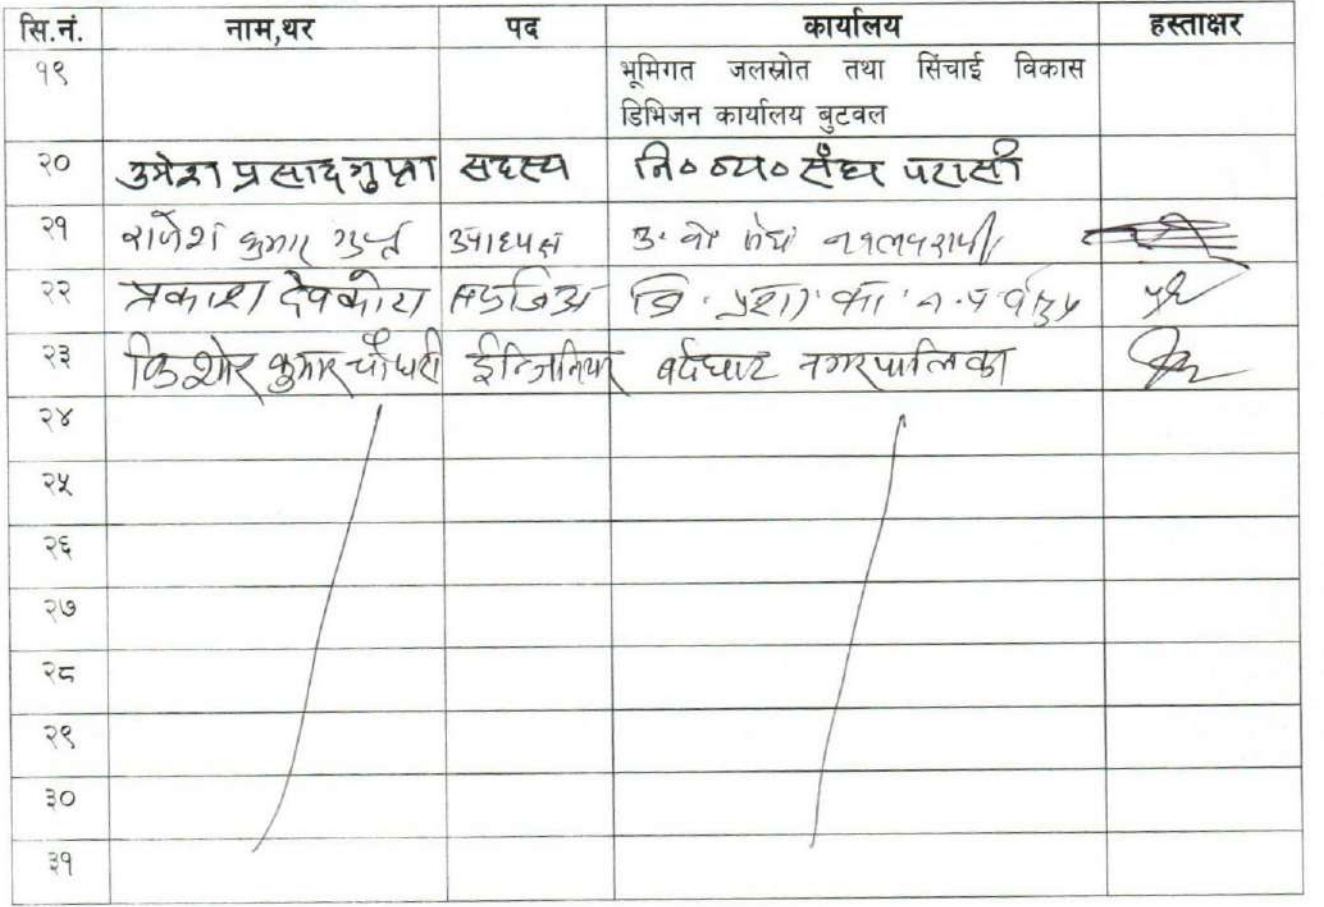 सि.नं. नाम,थर पद कार्यालय हस्ताक्षर
१९ भूमिगत जलस्रोत तथा सिंचाई विकास
डिभिजन कार्यालय बुटवल
२० उमेश प्रसाद गुप्ता सदस्य नि० व्य० सँघ परासी
२१ राजेश कुमार उपाध्यक्ष उ.
२२ प्रकाश देवकोटा
२३ किशोर कुमार चौधरी ईन्जिनियर बर्दघाट नगरपालिका
२४
२५
२६
२७
२८
२९
३०
३१